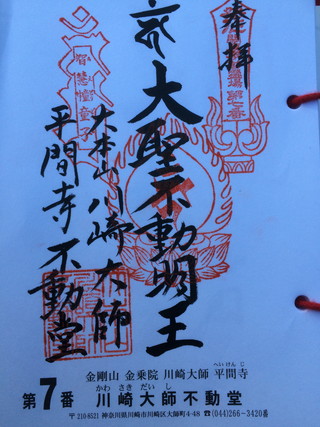 奉拝
大聖不動明王
大本山川崎大師
平間寺不動堂
智慧幢童子
金剛山 金乗院 川崎大師 平間寺
へいけんじ
かわ さき だい し
第7番 川崎大師不動堂
〒210-8521 神奈川県川崎市川崎区大師町4-48 ☎(044)266-3420番